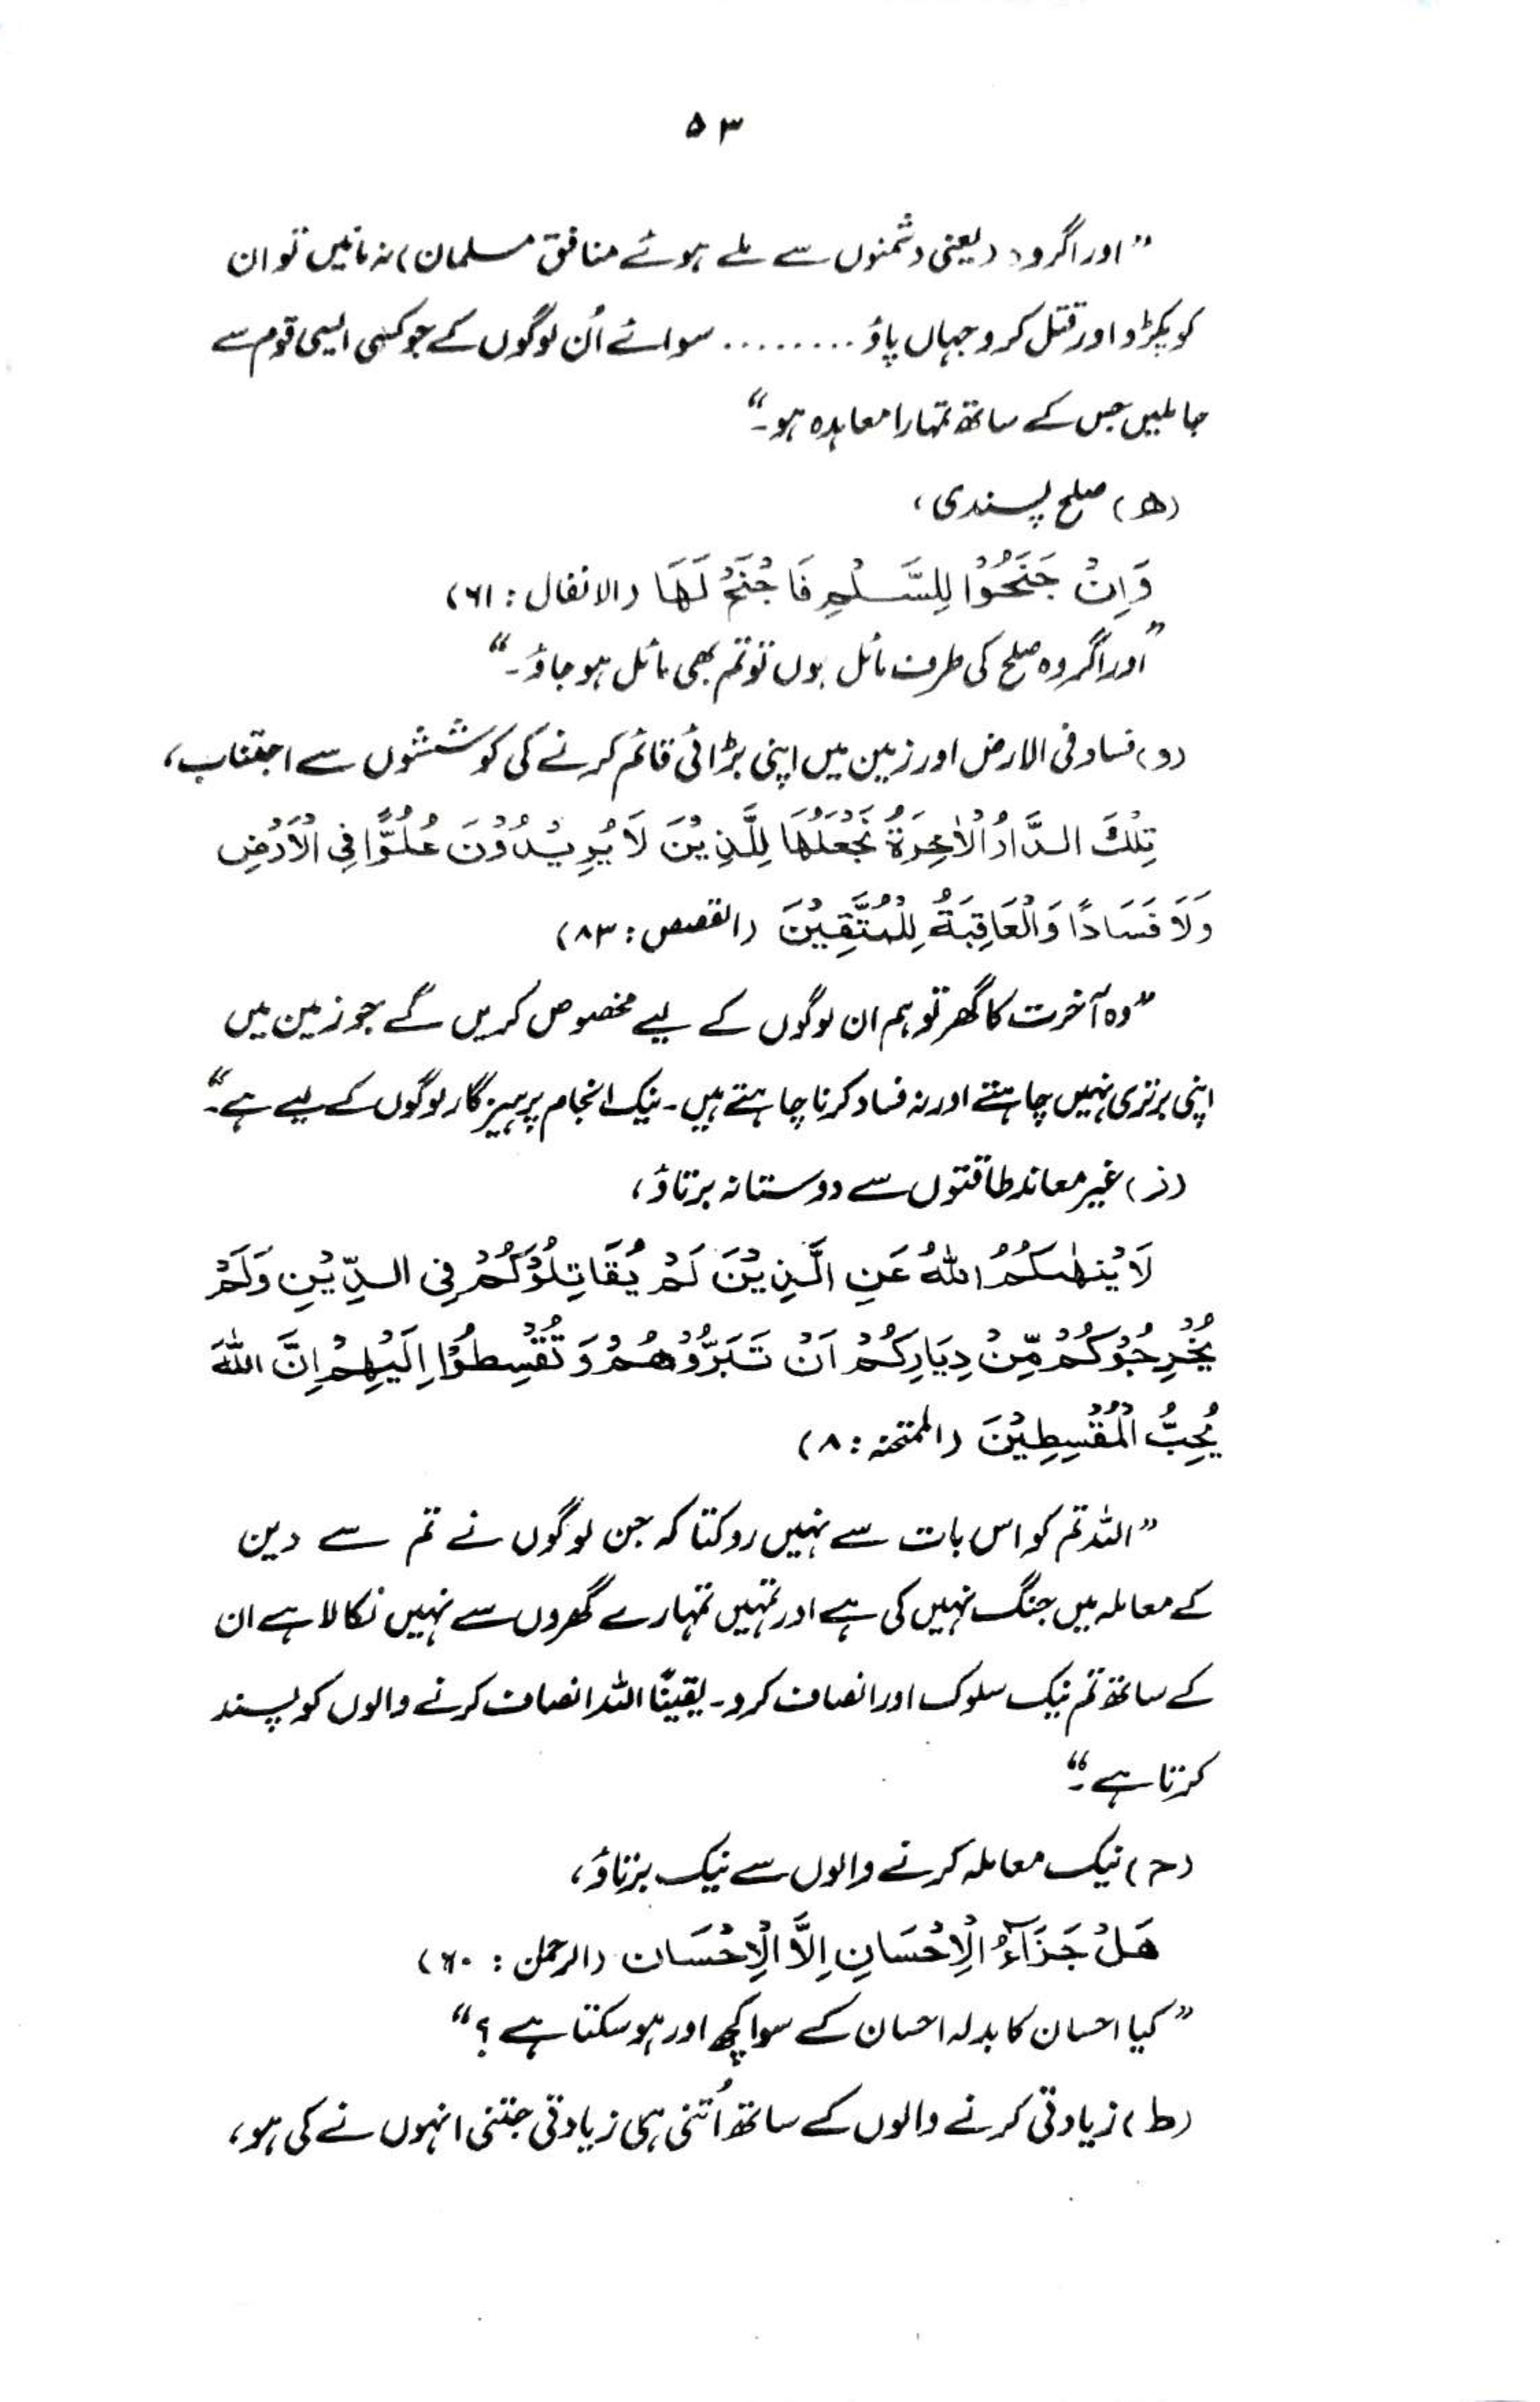 ۵۳
”اور اگر وہ (یعنی دشمنوں سے ملے ہوئے منافق مسلمان) نہ مانیں تو ان
کو پکڑو اور قتل کرو جہاں پاؤ ........ سوائے اُن لوگوں کے جو کسی ایسی قوم سے
جا ملیں جس کے ساتھ تمہارا معاہدہ ہو۔“
(ھ) صلح پسندی،
وَاِنْ جَنَحُوْا لِلسَّلْمِ فَاجْنَحْ لَهَا (الانفال : ۶۱)
”اور اگر وہ صلح کی طرف مائل ہوں تو تم بھی مائل ہو جاؤ۔“
(و) فساد فی الارض اور زمین میں اپنی بڑائی قائم کرنے کی کوششوں سے اجتناب،
تِلْكَ الدَّارُ الْاٰخِرَةُ نَجْعَلُهَا لِلَّذِيْنَ لَا يُرِيْدُوْنَ عُلُوًّا فِى الْاَرْضِ
وَلَا فَسَادًا وَالْعَاقِبَةُ لِلْمُتَّقِيْنَ (القصص : ۸۳)
”وہ آخرت کا گھر تو ہم ان لوگوں کے لیے مخصوص کریں گے جو زمین میں
اپنی برتری نہیں چاہتے اور نہ فساد کرنا چاہتے ہیں۔ نیک انجام پرہیزگار لوگوں کے لیے ہے۔“
(ز) غیر معاند طاقتوں سے دوستانہ برتاؤ،
لَا يَنْهٰىكُمُ اللهُ عَنِ الَّذِيْنَ لَمْ يُقَاتِلُوْكُمْ فِى الدِّيْنِ وَلَمْ
يُخْرِجُوْكُمْ مِّنْ دِيَارِكُمْ اَنْ تَبَرُّوْهُمْ وَتُقْسِطُوْا اِلَيْهِمْ اِنَّ اللهَ
يُحِبُّ الْمُقْسِطِيْنَ (الممتحنہ : ۸)
”اللہ تم کو اس بات سے نہیں روکتا کہ جن لوگوں نے تم سے دین
کے معاملہ میں جنگ نہیں کی ہے اور تمہیں تمہارے گھروں سے نہیں نکالا ہے ان
کے ساتھ تم نیک سلوک اور انصاف کرو۔ یقیناً اللہ انصاف کرنے والوں کو پسند
کرتا ہے۔“
(ح) نیک معاملہ کرنے والوں سے نیک برتاؤ،
هَلْ جَزَآءُ الْاِحْسَانِ اِلَّا الْاِحْسَان (الرحمٰن : ۶۰)
”کیا احسان کا بدلہ احسان کے سوا کچھ اور ہو سکتا ہے ؟“
(ط) زیادتی کرنے والوں کے ساتھ اُتنی ہی زیادتی جتنی انہوں نے کی ہو،